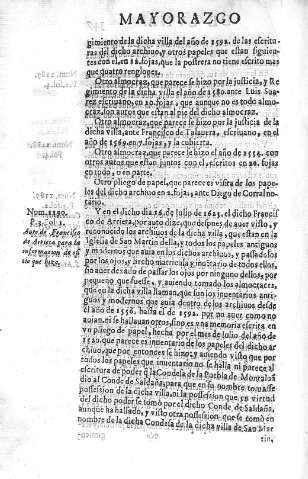 MAYORAZGO
gimiento de la dicha villa del año de 1592. de las escritu-
ras del dicho archiuo, y otros papeles que estan siguien-
tes con el, en 12. fojas, que la postrera no tiene escrito mas
que quatro renglones.
Otro almocraz, que parece se hizo por la justicia, y Re
gimiento de la dicha villa el año de 1580. ante Luis Sua
rez escriuano, en 12. fojas, que aunque no es todo almo-
craz, son autos que estan dentro del dicho almocraz.
Otro almocraz, que parece se hizo por la justicia de la
dicha villa, ante Francisco de Talauera, escriuano, en el
año de 1569. en 7. fojas, y la cubierta.
Otro almocraz, que parece se hizo el año de 1554. con
otros autos que estan juntos con el, escritos en 22. fojas
en todo, o en parte.
Otro pliego de papel, que parece es visita de los pape-
les del dicho archiuo en 2. fojas, ante Diego de Corralno-
tario.
Num. 1190.
P. 2. Col. 2.
Auto de Francisco
de Arrieta para la
informacion de
que hizo.
Y en el dicho dia 26. de Iulio de 1625. el dicho Francis-
co de Arrieta, por auto dixo, que despues de auer visto, y
reconocido los archiuos de la dicha villa, que estan en la
Iglesia de San Martin della, y todos los papeles antiguos
y modernos que auia en los dichos archiuos, y passadolos
por los ojos, y dicho matricula, y inuentario de todos ellos,
sin auer dexado de passar los ojos por ninguno dellos, por
pequeño que fuesse, y auiendo tomado los almocraces,
que en la dicha villa llaman, que son los inventarios anti-
guos y modernos que auia dentro de los archiuos desde
el año de 1556. hasta el de 1592. por no auer como no
auian, ni se hallauan otros, sino es una memoria escrita en
vn pliego de papel, fecha por el mes de Iulio del año de
1540. que parece es inuentario de los papeles del dicho ar-
chiuo, que por entonces se hizo; y auiendo visto que por
todos los papeles que inuentario no se halla ni parece al
escritura de poder q̃ la Condesa de la Puebla de Montaluã
dio al Conde de Saldaña, para que en su nombre tomasse
possession de la dicha villa, ni la possession que en virtud
del dicho poder se tomò por el dicho Conde de Saldaña,
aunque ha hallado, y visto otra possession que se tomò en
nombre de la dicha Condesa de la dicha villa de San Mar
tin,